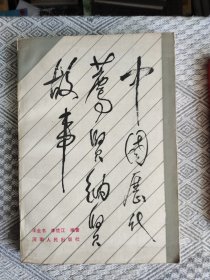 中国歷代
薦贤纳贤
故事
编著
河南人民出版社